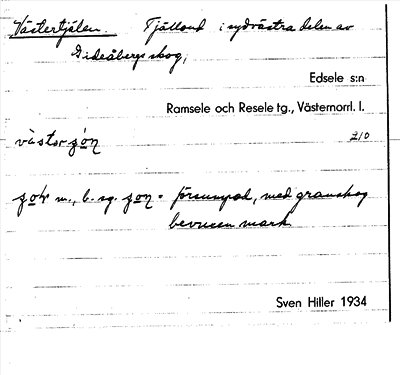 Västertjälen. Tjälland i sydvästra delen av
Gideåbergs skog;
Edsele s:n
Ramsele och Resele tg., Västernorrl. l.
210
m., b. sg. = försumpad, med granskog
bevuxen mark
Sven Hiller 1934